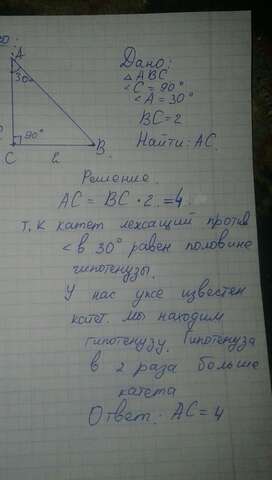 A
30
90°
C
2
B
Дано:
△ABC
<C = 90°
<A = 30°
BC = 2
Найти: AC.
Решение.
AC = BC · 2 = 4
т.к катет лежсащий против
< в 30° равен половине
гипотенузы.
У нас уже известен
катет. Мы находим
гипотенузу. Гипотенуза
в 2 раза больше
катета
Ответ: AC = 4